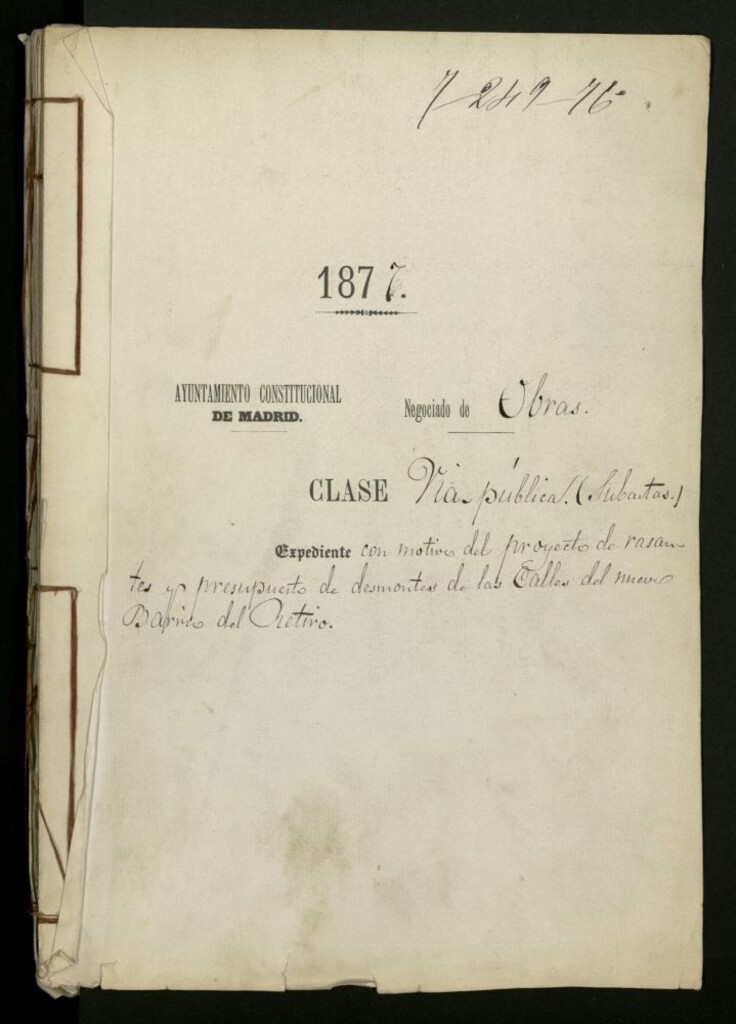 7-249-76
1877.
AYUNTAMIENTO CONSTITUCIONAL
DE MADRID.
Negociado de Obras.
CLASE Via-pública. (Subastas.)
Expediente con motivo del proyecto de rasan-
tes y presupuesto de desmontes de las Calles del nuevo
Barrio del Retiro.